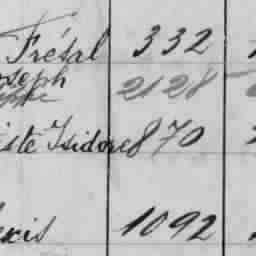 Frésal 332
oseph 2128
iste Isidore 870
exis 1092